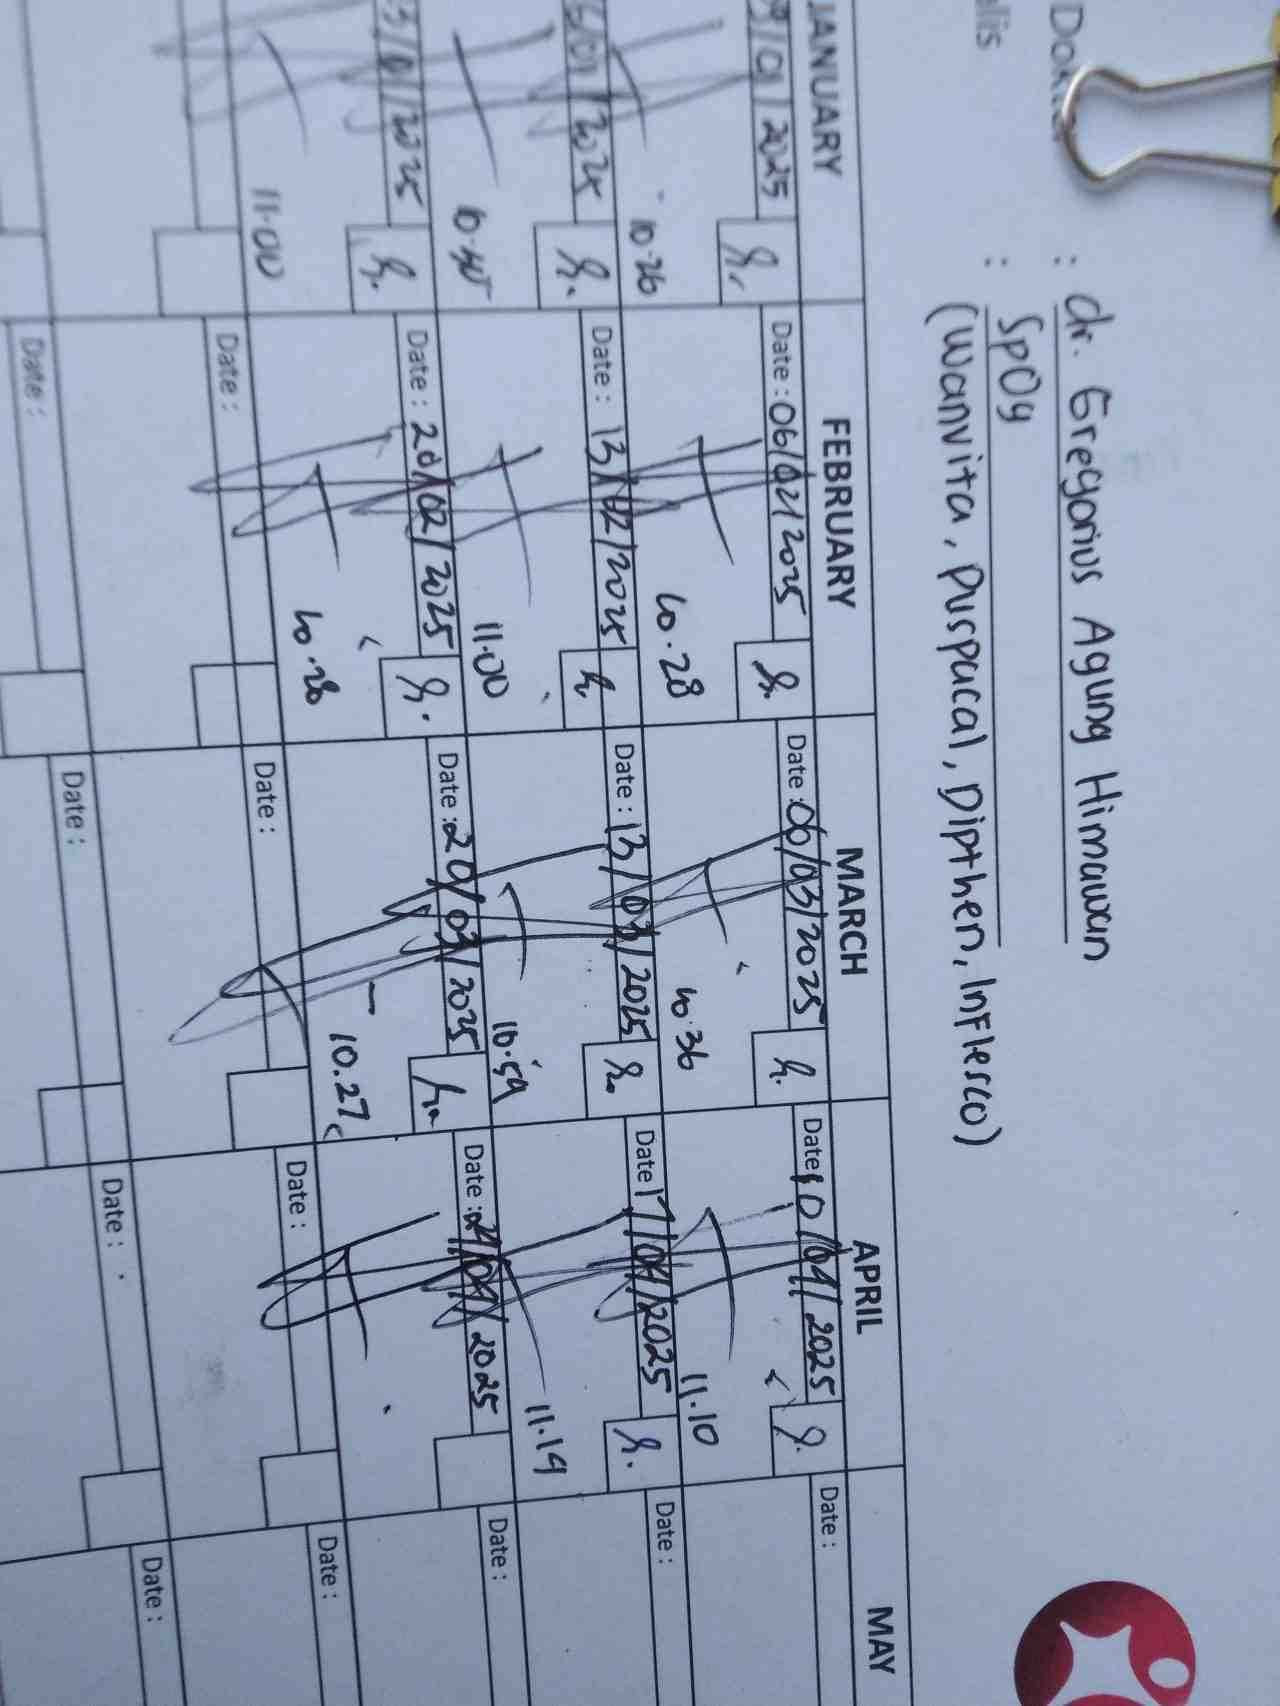 : dr. Gregorius Agung Himawan
: SpOg
(Wanvita, Puspacal, Dipthen, Inflesco)
JANUARY FEBRUARY MARCH APRIL MAY
/01/2025 Date : 06/02/2025 Date : 06/03/2025 Date 10/04/2025 Date :
10.26 10.28 10.36 11.10
/01/2025 Date : 13/02/2025 Date : 13/03/2025 Date 17/04/2025 Date :
11.00 10.59 11.19
/2025 Date : 20/02/2025 Date : 20/03/2025 Date : 24/04/2025 Date :
11.00 10.27
Date : Date : Date : Date :
Date : Date : Date : Date :